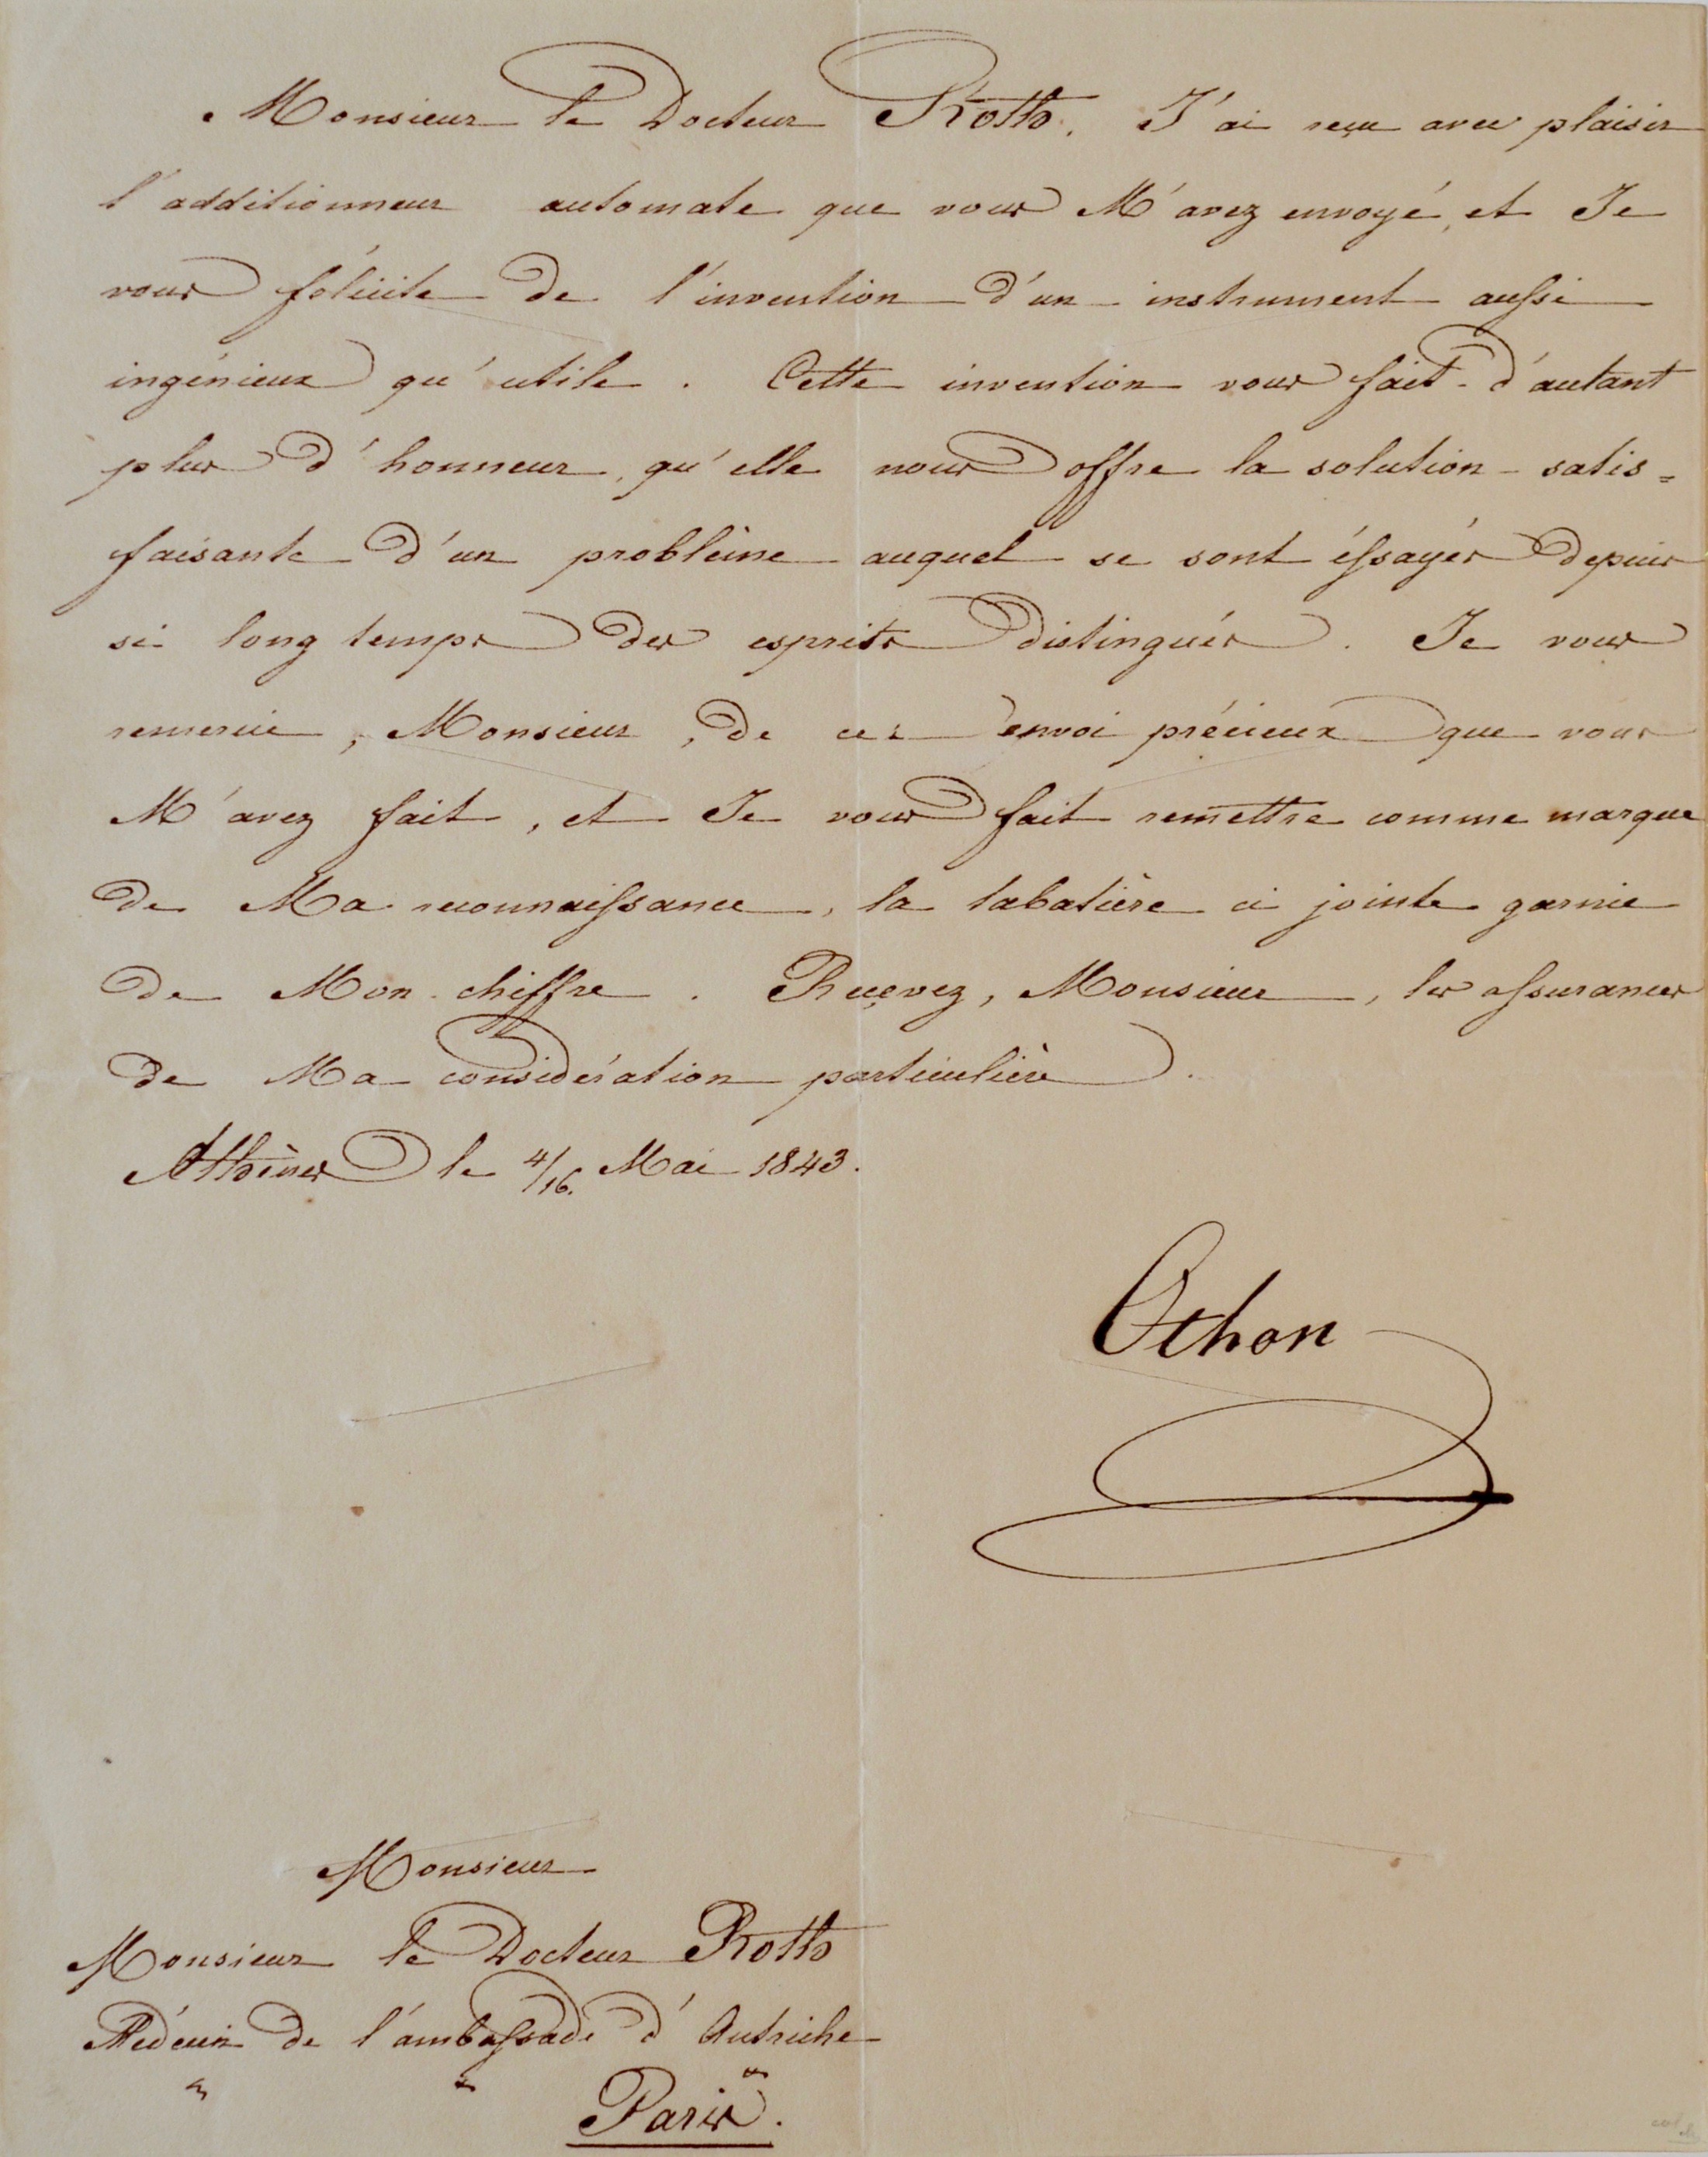 Monsieur le Docteur Roth. J'ai reçu avec plaisir
l'additionneur automate que vous M'avez envoyé, et Je
vous félicite de l'invention d'un instrument aussi
ingénieux qu'utile. Cette invention vous fait d'autant
plus d'honneur, qu'elle nous offre la solution satis=
faisante d'un problème auquel se sont éssayés depuis
si long temps des esprits distingués. Je vous
remercie, Monsieur, de cet envoi précieux que vous
M'avez fait, et Je vous fait remettre comme marque
de Ma reconnaissance, la tabatière ci jointe garnie
de Mon chiffre. Reçevez, Monsieur, les assurances
de Ma considération particulière.
Athènes le 4/16. Mai 1843.
Othon
Monsieur
Monsieur le Docteur Roth
Médecin de l'ambassade d'Autriche
" " "
Paris.